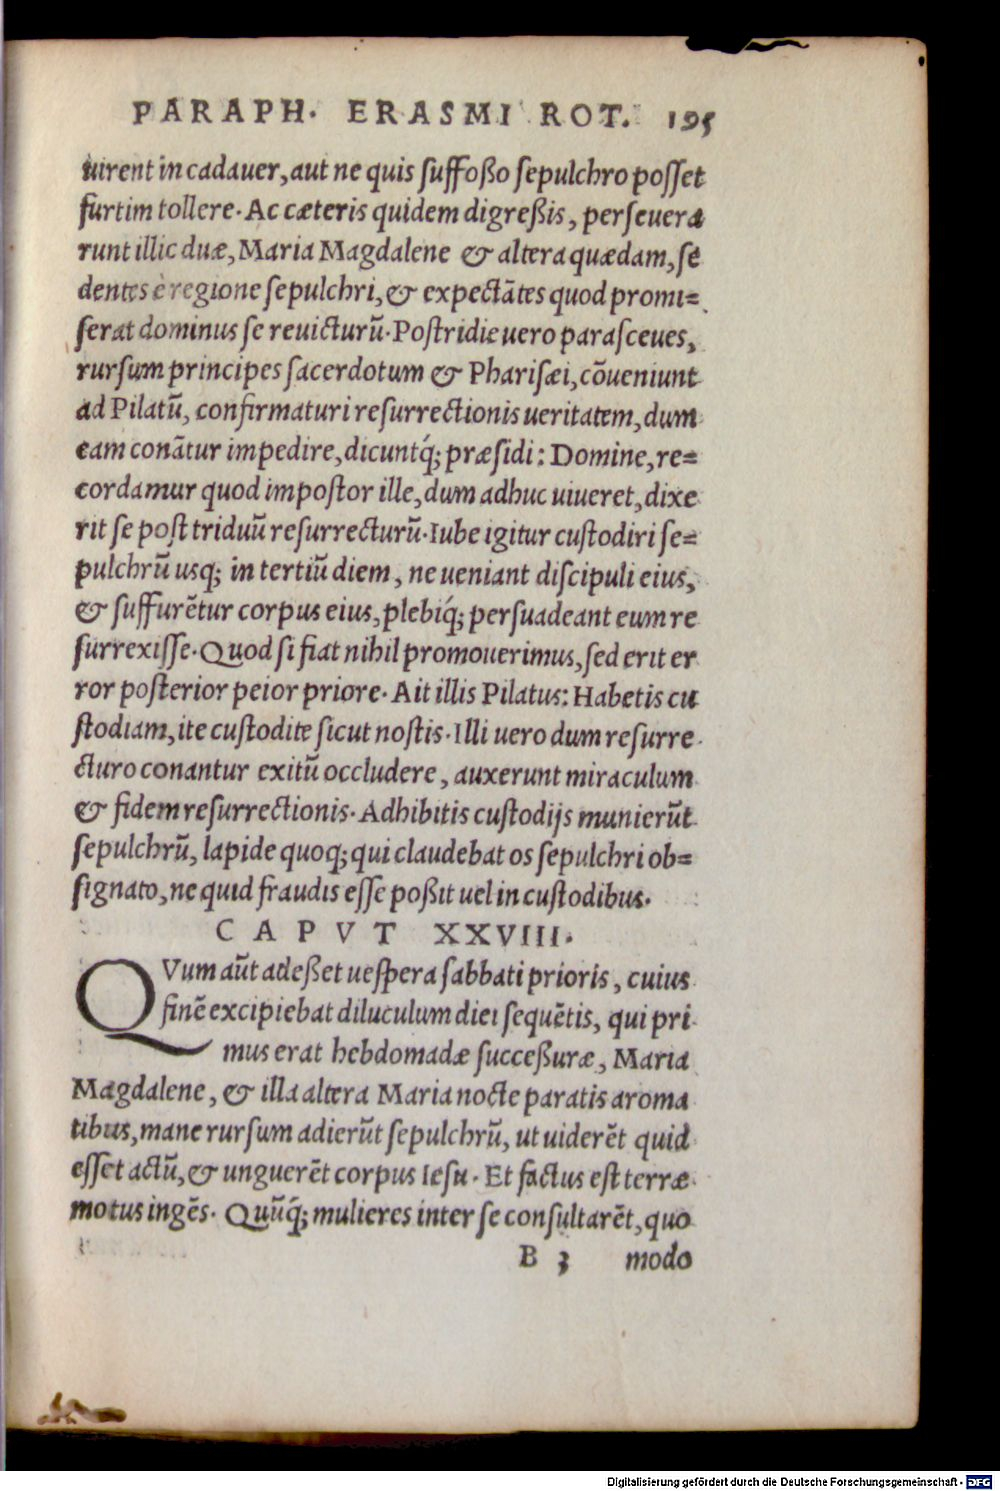 PARAPH. ERASMI ROT. 195
uirent in cadauer, aut ne quis ſuffoßo ſepulchro poſſet
furtim tollere. Ac cæteris quidem digreßis, perſeuera
runt illic duæ, Maria Magdalene & altera quædam, ſe
dentes è regione ſepulchri, & expectātes quod promi=
ſerat dominus ſe reuicturū. Poſtridie uero paraſceues,
rurſum principes ſacerdotum & Phariſæi, cōueniunt
ad Pilatū, confirmaturi reſurrectionis ueritatem, dum
eam conātur impedire, dicuntq́; præſidi: Domine, re=
cordamur quod impoſtor ille, dum adhuc uiueret, dixe
rit ſe poſt triduū reſurrecturū. Iube igitur cuſtodiri ſe=
pulchrū usq; in tertiū diem, ne ueniant diſcipuli eius,
& ſuffurētur corpus eius, plebiq́; perſuadeant eum re
ſurrexiſſe. Quod ſi fiat nihil promouerimus, ſed erit er
ror poſterior peior priore. Ait illis Pilatus: Habetis cu
ſtodiam, ite cuſtodite ſicut noſtis. Illi uero dum reſurre
cturo conantur exitū occludere, auxerunt miraculum
& fidem reſurrectionis. Adhibitis cuſtodijs munierūt
ſepulchrū, lapide quoq; qui claudebat os ſepulchri ob=
ſignato, ne quid fraudis eſſe poßit uel in cuſtodibus.
CAPVT XXVIII.
QVum aūt adeßet ueſpera ſabbati prioris, cuius
finē excipiebat diluculum diei ſequētis, qui pri
mus erat hebdomadæ ſucceßuræ, Maria
Magdalene, & illa altera Maria nocte paratis aroma
tibus, mane rurſum adierūt ſepulchrū, ut uiderēt quid
eſſet actū, & unguerēt corpus Ieſu. Et factus eſt terræ
motus ingēs. Quūq́; mulieres inter ſe conſultarēt, quo
B 3 modo
Digitalisierung gefördert durch die Deutsche Forschungsgemeinschaft - DFG